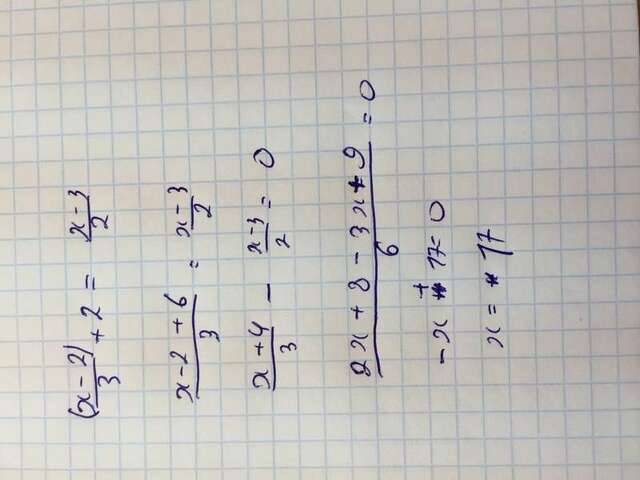 (x-2)/3 + 2 = x-3/2
x-2+6/3 = x-3/2
x+4/3 - x-3/2 = 0
2x+8-3x+9/6 = 0
-x + 17 = 0
x = 17